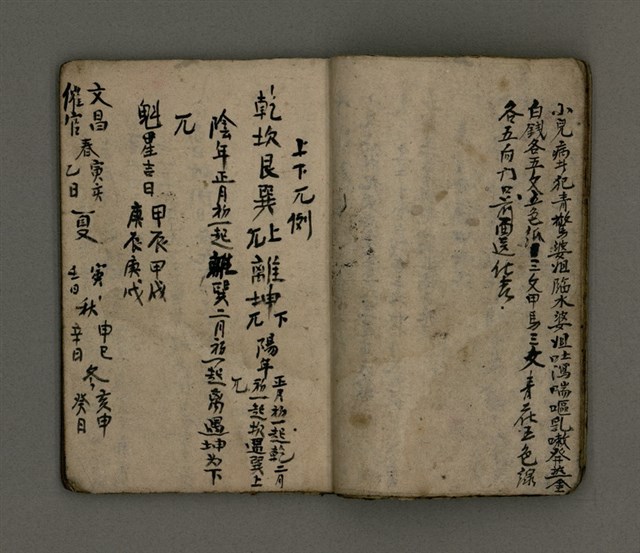 小兒病犯青驚婆姐臨水婆姐吐瀉喘嘔乳嗽發熱金
白錢各五文五色紙三文甲馬三文青花五色線
各五向九只前酉送化吉
上下兀例
乾坎艮巽上兀離坤下兀陽年正月初一起乾二月初一起坎還巽上兀
陰年正月初一起離巽二月初一起离還坤為下
兀
魁星吉日 甲辰 甲戌
庚辰 庚戌
文昌 春 寅亥 夏 寅 秋 申巳 冬 亥申
催官 乙日 壬日 辛日 癸日